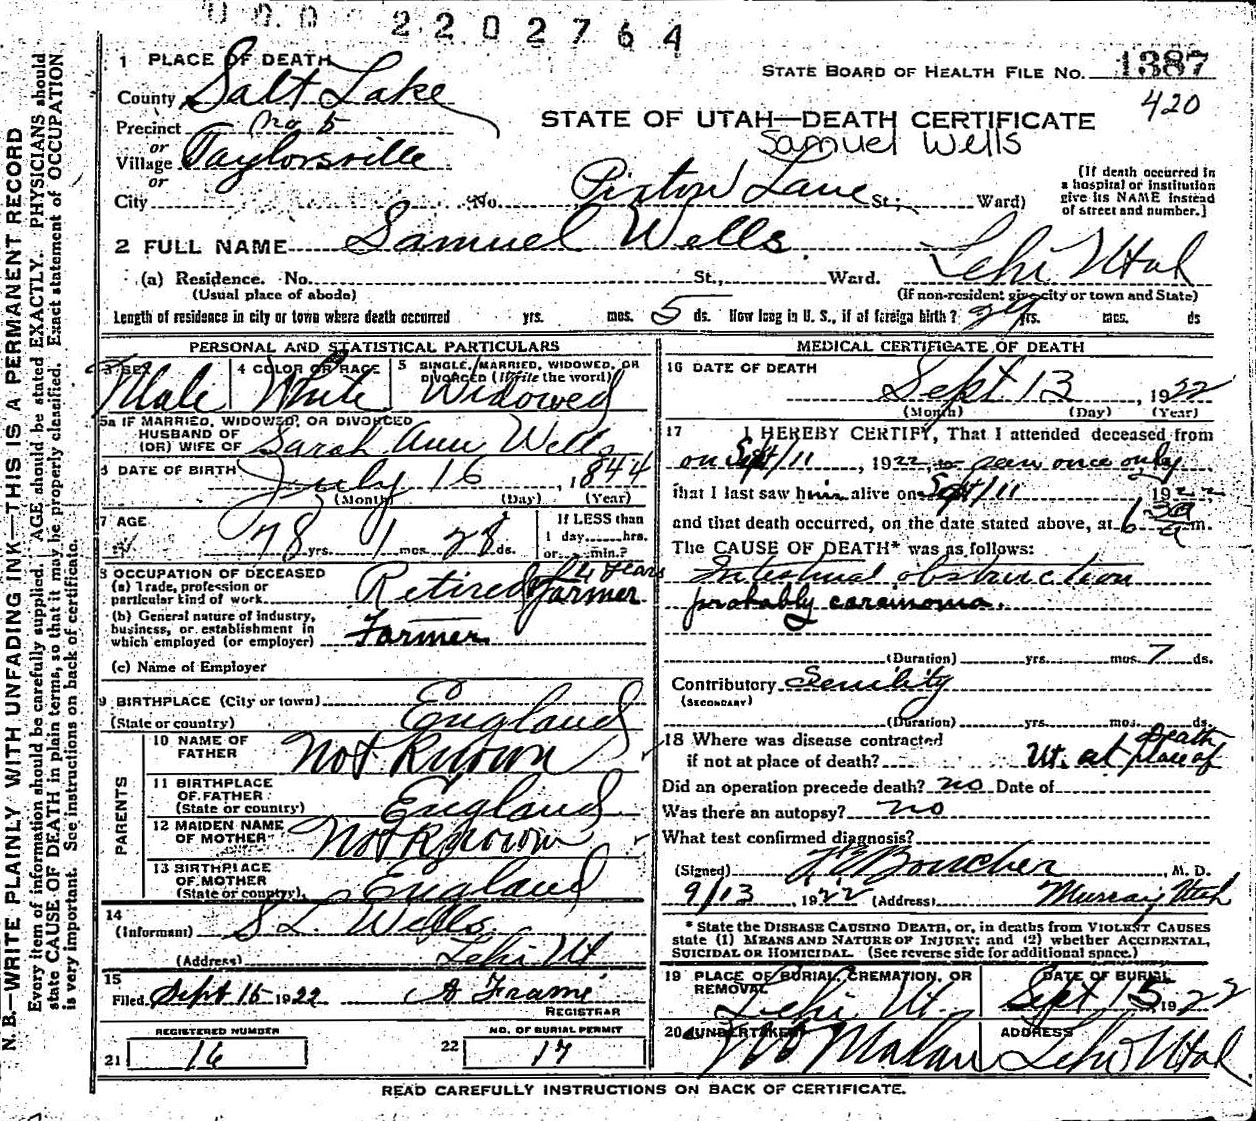 2202764
1 PLACE OF DEATH
STATE BOARD OF HEALTH FILE NO. 1387
420
County Salt Lake
STATE OF UTAH—DEATH CERTIFICATE
Precinct No 5
Samuel Wells
or
Village Taylorsville
or
City No. Pixton Lane St; Ward)
(If death occurred in
a hospital or institution
give its NAME instead
of street and number.)
2 FULL NAME Samuel Wells.
(a) Residence. No. St., Ward. Lehi Utah
(Usual place of abode) (If non-resident give city or town and State)
Length of residence in city or town where death occurred yrs. mos. 5 ds. How long in U. S., if of foreign birth? yrs. mos. ds
PERSONAL AND STATISTICAL PARTICULARS
3 SEX Male
4 COLOR OR RACE White
5 SINGLE, MARRIED, WIDOWED, OR
DIVORCED (Write the word) Widowed
5a IF MARRIED, WIDOWED, OR DIVORCED
HUSBAND OF
(OR) WIFE OF Sarah Ann Wells
6 DATE OF BIRTH July 16, 1844
(Month) (Day) (Year)
7 AGE 78 yrs. 1 mos. 28 ds.
If LESS than
1 day,......hrs.
or......min.?
8 OCCUPATION OF DECEASED
(a) Trade, profession or
particular kind of work Retired 4 years Farmer
(b) General nature of industry,
business, or establishment in
which employed (or employer) Farmer
(c) Name of Employer
9 BIRTHPLACE (City or town)
(State or country) England
PARENTS
10 NAME OF
FATHER Not Known
11 BIRTHPLACE
OF FATHER
(State or country) England
12 MAIDEN NAME
OF MOTHER Not Known
13 BIRTHPLACE
OF MOTHER
(State or country) England
14
(Informant) S L Wells
(Address) Lehi Ut
15
Filed Sept 15 1922 Frame
REGISTRAR
REGISTERED NUMBER NO. OF BURIAL PERMIT
21 16 22 17
MEDICAL CERTIFICATE OF DEATH
16 DATE OF DEATH
Sept 13, 1922
(Month) (Day) (Year)
17 I HEREBY CERTIFY, That I attended deceased from
on Sept/11, 1922 to seen once only
that I last saw him alive on Sept/11 1922
and that death occurred, on the date stated above, at 6 30 a m.
The CAUSE OF DEATH* was as follows:
Intestinal obstruction
probably carcinoma.
(Duration) yrs. mos. 7 ds.
Contributory Senility
(SECONDARY)
(Duration) yrs. mos. ds.
18 Where was disease contracted
if not at place of death? Ut. at place of Death
Did an operation precede death? no Date of
Was there an autopsy? no
What test confirmed diagnosis?
(Signed) Boucher, M. D.
9/13, 1922 (Address) Murray, Utah
* State the DISEASE CAUSING DEATH, or, in deaths from VIOLENT CAUSES
state (1) MEANS AND NATURE OF INJURY; and (2) whether ACCIDENTAL,
SUICIDAL OR HOMICIDAL. (See reverse side for additional space.)
19 PLACE OF BURIAL, CREMATION, OR
REMOVAL Lehi Ut.
DATE OF BURIAL
Sept 15, 1922
20 UNDERTAKER Malan
ADDRESS Lehi Utah
READ CAREFULLY INSTRUCTIONS ON BACK OF CERTIFICATE.
N. B.—WRITE PLAINLY WITH UNFADING INK—THIS IS A PERMANENT RECORD
Every item of information should be carefully supplied. AGE should be stated EXACTLY. PHYSICIANS should
state CAUSE OF DEATH in plain terms, so that it may be properly classified. Exact statement of OCCUPATION
is very important. See instructions on back of certificate.